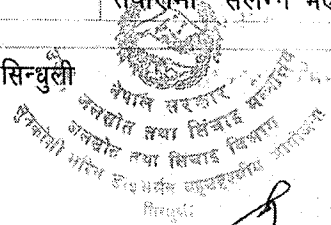 संलग्न
सिन्धुली
नेपाल सरकार
जलस्रोत तथा सिंचाइ मन्त्रालय
जलस्रोत तथा सिंचाइ विभाग
सुनकोशी मरिन डाइभर्सन बहुउद्देश्यीय आयोजना
सिन्धुली